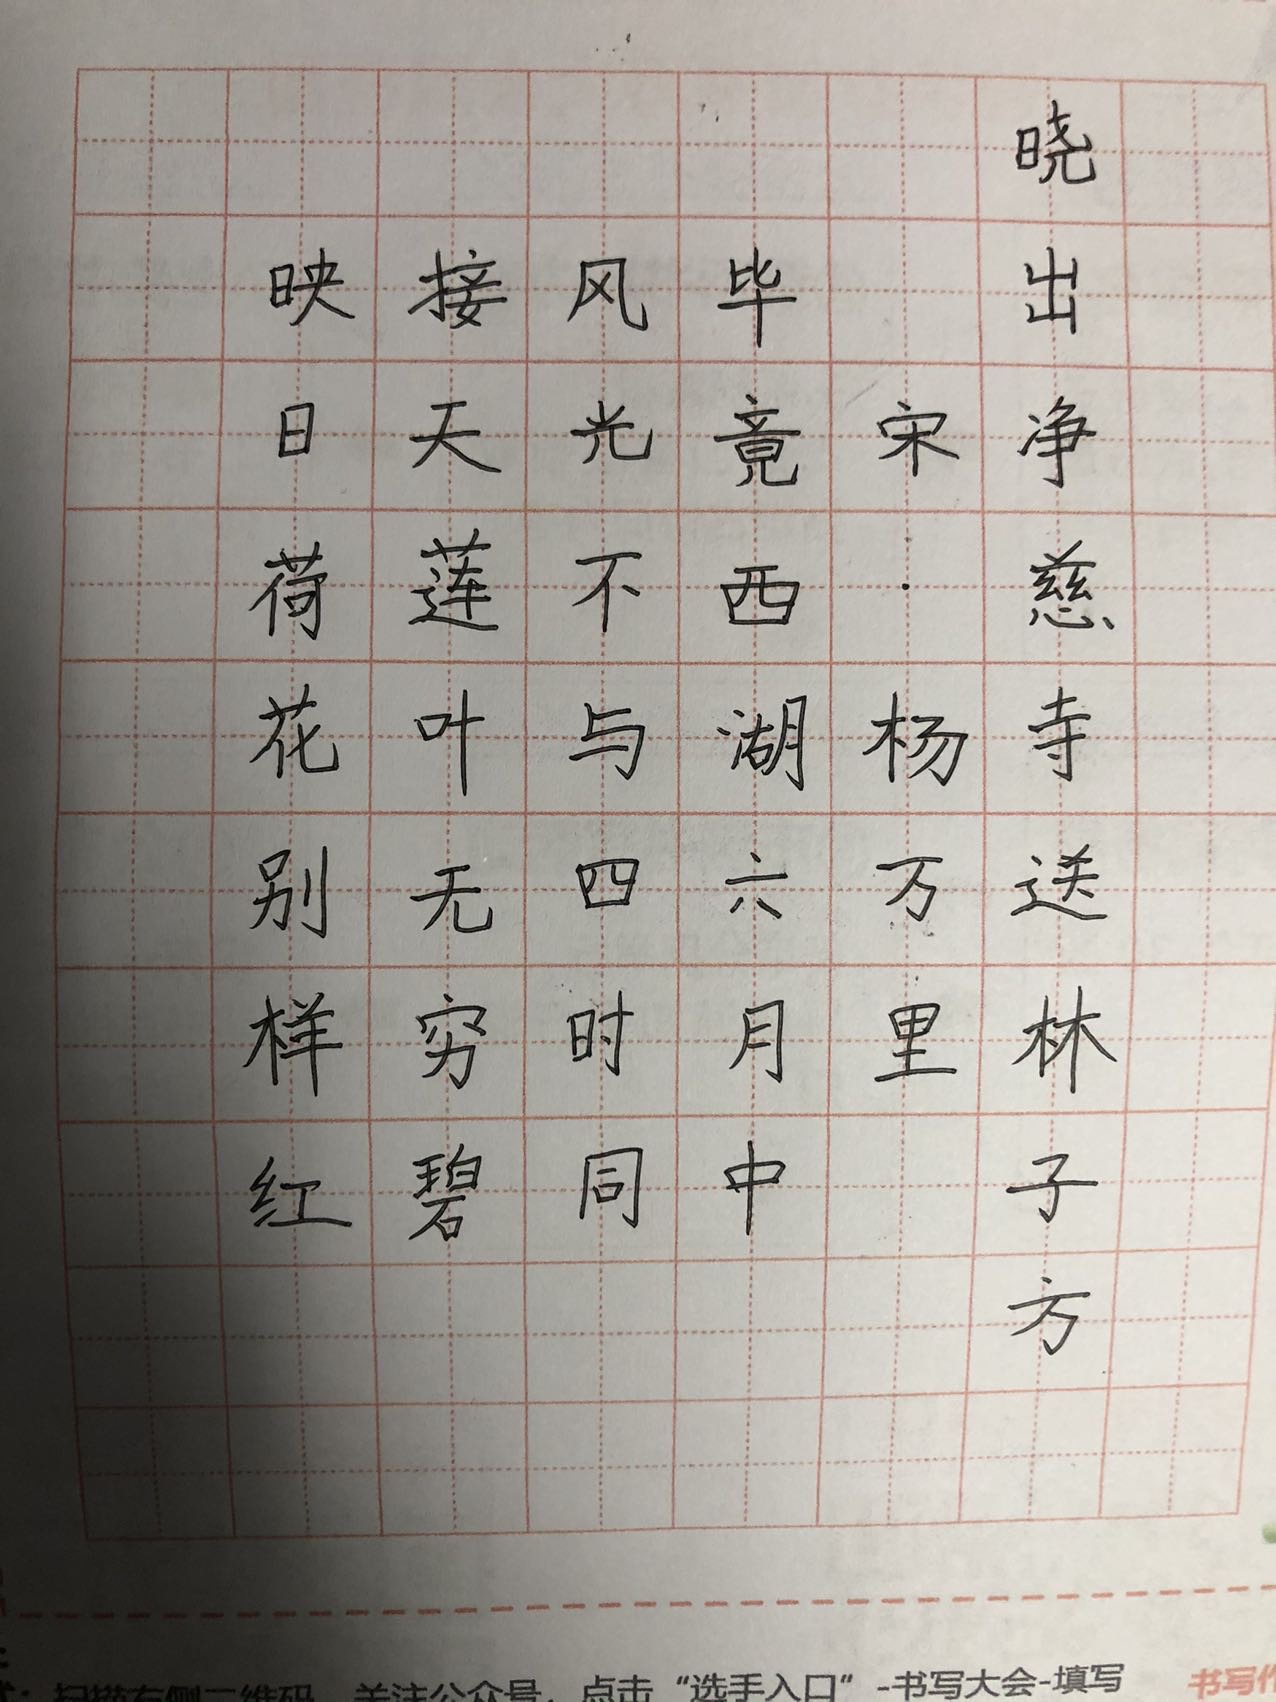 晓出净慈寺送林子方
宋·杨万里
毕竟西湖六月中
风光不与四时同
接天莲叶无穷碧
映日荷花别样红
扫描右侧二维码，关注公众号，点击“选手入口”-书写大会-填写
书写作